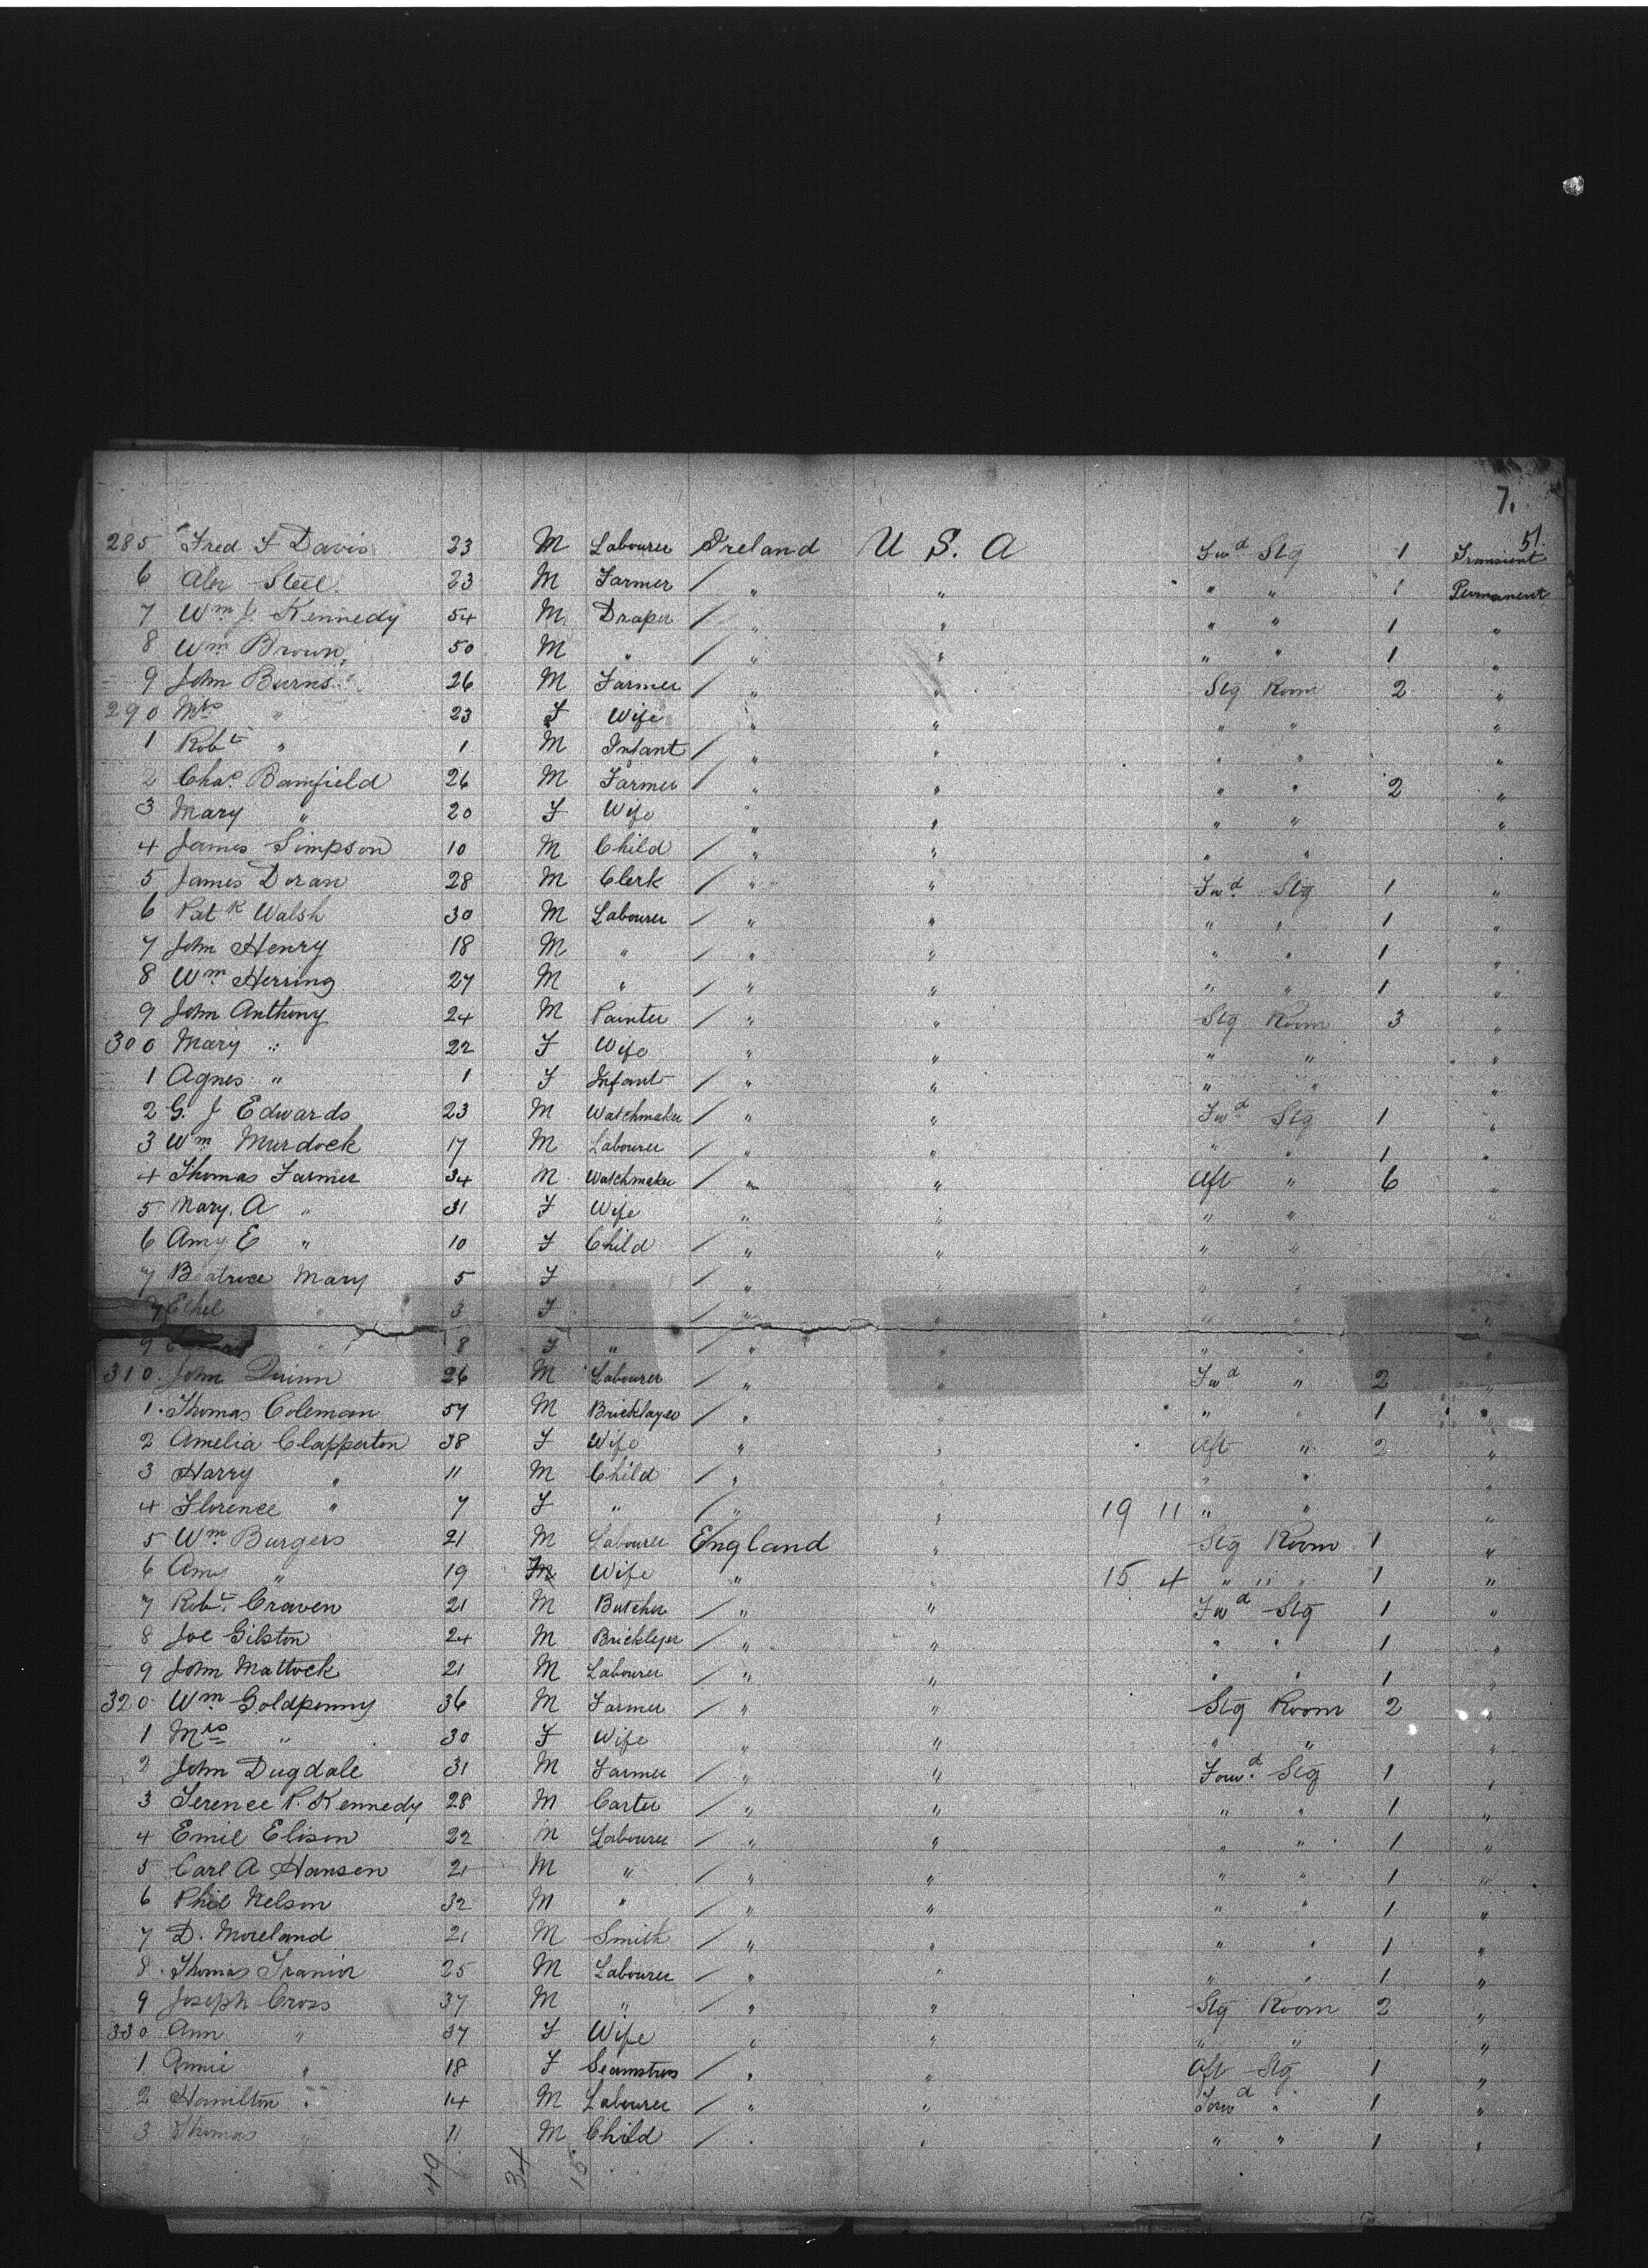 7.
51.
285 Fred F Davis 23 M Labourer Ireland U S. A Fwd Stg 1 Transient
6 Alex Steel 23 M Farmer / " " " " 1 Permanent
7 Wm J. Kennedy 54 M Draper / " " " " 1 "
8 Wm Brown 50 M " / " " " " 1 "
9 John Burns 26 M Farmer / " " Stg Room 2 "
290 Mrs " 23 F Wife " " " " "
1 Robt " 1 M Infant / " " " " "
2 Chas. Bamfield 26 M Farmer / " " " " 2 "
3 Mary " 20 F Wife " " " " "
4 James Simpson 10 M Child / " " " " "
5 James Doran 28 M Clerk / " " Fwd Stg 1 "
6 Patk Walsh 30 M Labourer / " " " " 1 "
7 John Henry 18 M " / " " " " 1 "
8 Wm Herring 27 M " / " " " " 1 "
9 John Anthony 24 M Painter / " " Stg Room 3 "
300 Mary " 22 F Wife " " " " "
1 Agnes " 1 F Infant / " " " " "
2 G. J Edwards 23 M Watchmaker / " " Fwd Stg 1 "
3 Wm Murdock 17 M Labourer / " " " " 1 "
4 Thomas Farmer 34 M Watchmaker / " " Aft " 6 "
5 Mary. A " 31 F Wife " " " " "
6 Amy E " 10 F Child / " " " "
7 Beatrice Mary 5 F " / " " " " "
Ethel " 3 F / " " " " "
9 " 8 F " / " " " " "
310. John Quinn 26 M Labourer / " " Fwd " 2 "
1. Thomas Coleman 57 M Bricklayer / " " " " 1 "
2 Amelia Clapperton 38 F Wife " " Aft " 2 "
3 Harry " 11 M Child / " " " " "
4 Florence " 7 F " / " " 19 11 " " "
5 Wm Burgers 21 M Labourer England " Stg Room 1 "
6 Amy " 19 F Wife " " 15 4 " " 1 "
7 Robt. Craven 21 M Butcher / " " Fwd Stg 1 "
8 Joe Gilston 24 M Bricklyer / " " " " 1 "
9 John Mattock 21 M Labourer / " " " " 1 "
320 Wm Goldpenny 36 M Farmer / " " Stg Room 2 "
1 Mrs " 30 F Wife " " " " "
2 John Dugdale 31 M Farmer / " " Forwd. Stg 1 "
3 Terence P. Kennedy 28 M Carter / " " " " 1 "
4 Emil Elison 22 M Labourer / " " " " 1 "
5 Carl A Hansen 21 M " / " " " " 1 "
6 Phil Nelson 32 M " / " " " " 1 "
7 D. Moreland 21 M Smith / " " " " 1 "
8. Thomas Tranior 25 M Labourer / " " " " 1 "
9 Joseph Cross 37 M " / " " Stg Room 2 "
330 Ann " 37 F Wife " " " " "
1 Annie " 18 F Seamstress / " " Aft Stg 1 "
2 Hamilton " 14 M Labourer / " " Forwd " 1 "
3 Thomas " 11 M Child / " " " " 1 "
49 34 15